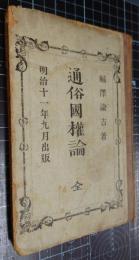 福澤諭吉著
通俗國權論 全
明治十一年九月出版